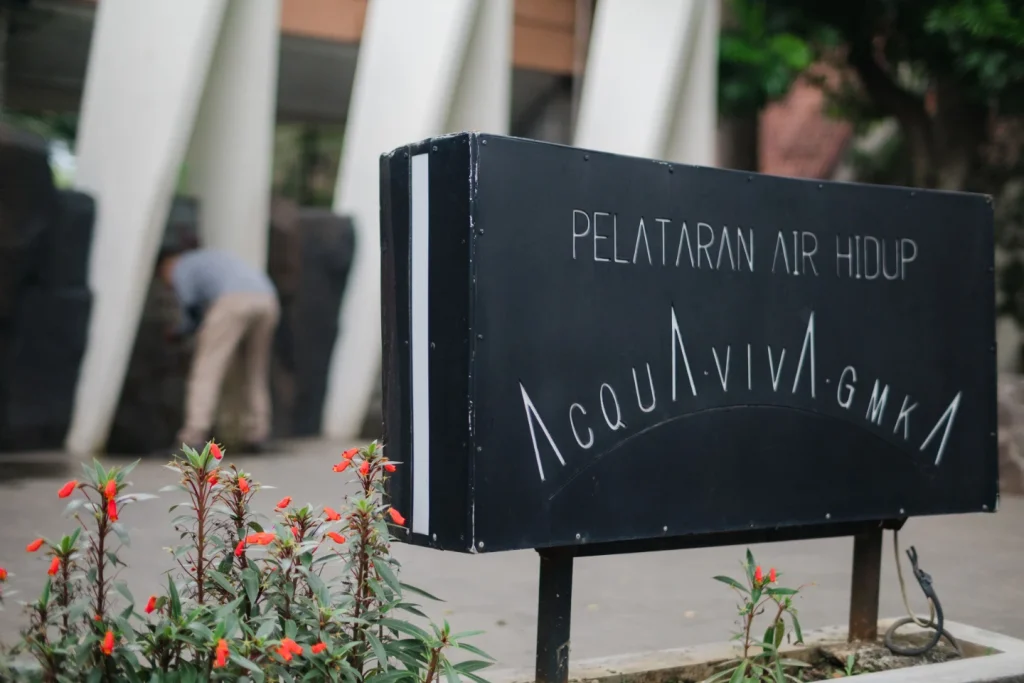 PELATARAN AIR HIDUP
ACQUA·VIVA·GMKA